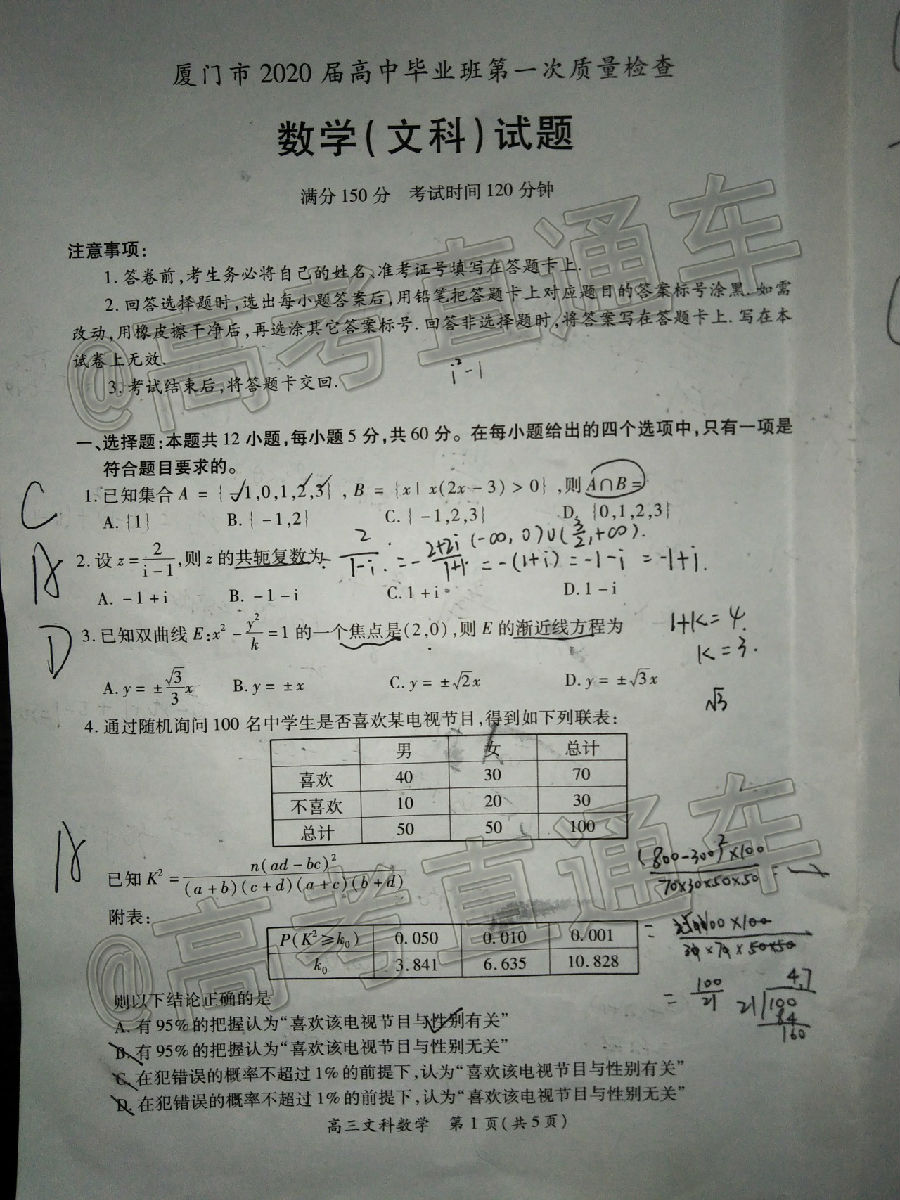 厦门市2020届高中毕业班第一次质量检查
数学(文科)试题
满分150分 考试时间120分钟
注意事项:
1.答卷前,考生务必将自己的姓名、准考证号填写在答题卡上.
2.回答选择题时,选出每小题答案后,用铅笔把答题卡上对应题目的答案标号涂黑.如需
改动,用橡皮擦干净后,再选涂其它答案标号.回答非选择题时,将答案写在答题卡上.写在本
试卷上无效.
3.考试结束后,将答题卡交回.
i²-1
@高考直通车
一、选择题:本题共12小题,每小题5分,共60分。在每小题给出的四个选项中,只有一项是
符合题目要求的。
C
1.已知集合A={-1,0,1,2,3},B={x|x(2x-3)>0},则A∩B=
A.{1} B.{-1,2} C.{-1,2,3} D.{0,1,2,3}
(-∞,0)∪(3/2,+∞).
A
2.设z=2/(i-1),则z的共轭复数为
2/(1-i) = -(2+2i)/(1+1) = -(1+i) = -1-i = -1+i.
A.-1+i B.-1-i C.1+i D.1-i
D
3.已知双曲线E:x²-y²/k=1的一个焦点是(2,0),则E的渐近线方程为
1+k=4.
k=3.
A.y=±√3/3x B.y=±x C.y=±√2x D.y=±√3x
√3
4.通过随机询问100名中学生是否喜欢某电视节目,得到如下列联表:
男 女 总计
喜欢 40 30 70
不喜欢 10 20 30
总计 50 50 100
A
已知K²=n(ad-bc)²/((a+b)(c+d)(a+c)(b+d))
(800-300)²×100/(70×30×50×50) =
附表:
P(K²≥k₀) 0.050 0.010 0.001
k₀ 3.841 6.635 10.828
= 100/21
4.7
21 100
84
160
@高考直通车
则以下结论正确的是
A.有95%的把握认为“喜欢该电视节目与性别有关”
B.有95%的把握认为“喜欢该电视节目与性别无关”
C.在犯错误的概率不超过1%的前提下,认为“喜欢该电视节目与性别有关”
D.在犯错误的概率不超过1%的前提下,认为“喜欢该电视节目与性别无关”
高三文科数学 第1页(共5页)